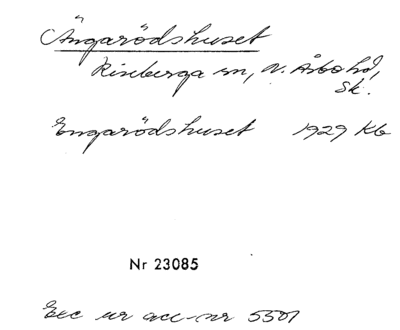 Ängarödshuset
Riseberga sn, N. Åsbo hd,
Sk.
Engarödshuset 1929 Kb
Nr 23085
Exc ur acc-nr 5501